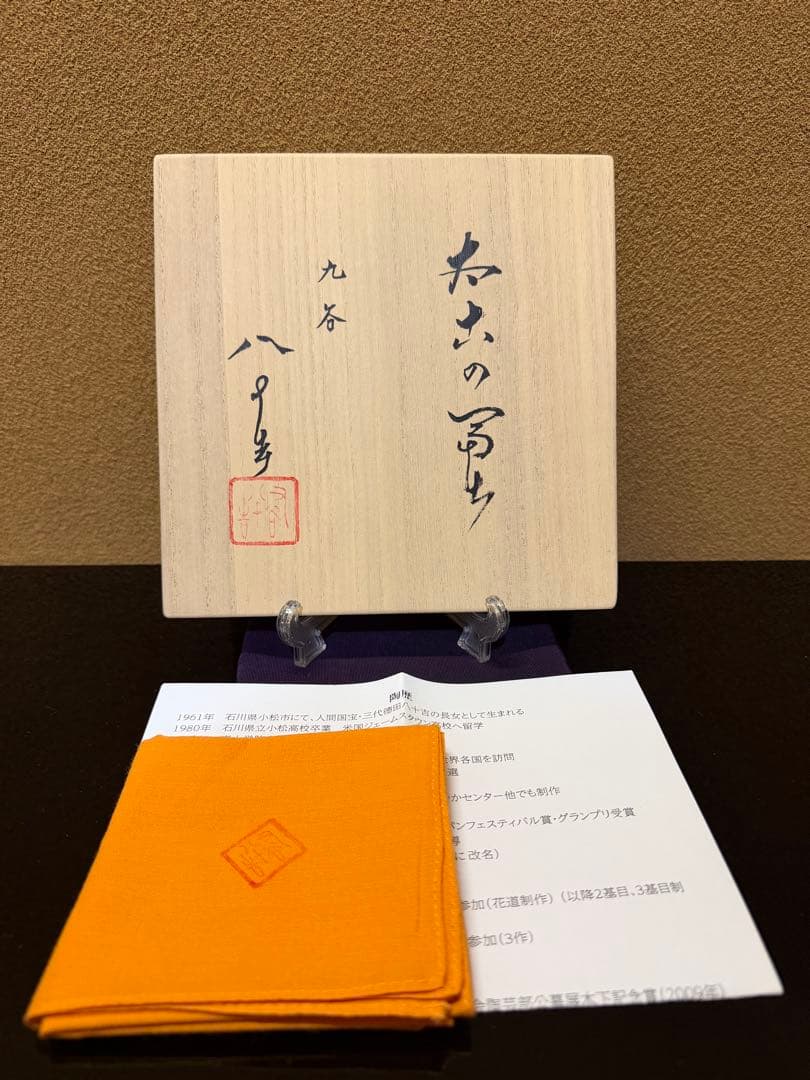 太古の富士
九谷
八十吉
陶歴
1961年 石川県小松市にて、人間国宝・三代徳田八十吉の長女として生まれる
1980年 石川県立小松高校卒業 米国ジェームスタウン高校へ留学
世界各国を訪問
選
かセンター他でも制作
パンフェスティバル賞・グランプリ受賞
導
に改名)
参加(花道制作) (以降2基目、3基目制
参加(3作)
会陶芸部公募展木下記念賞(2009年)